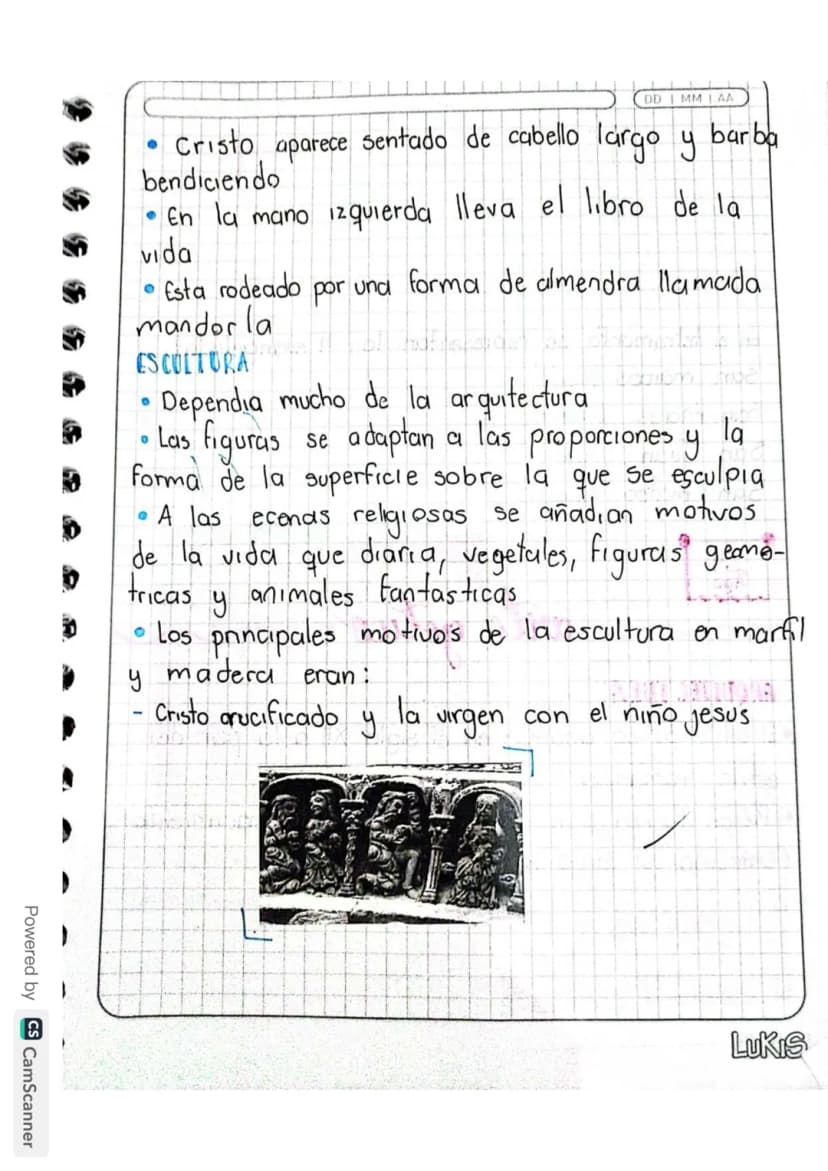 DD | MM | AA
• Cristo aparece sentado de cabello largo y barba
bendiciendo
• En la mano izquierda lleva el libro de la
vida
• Esta rodeado por una forma de almendra llamada
mandorla
ESCULTURA
• Dependia mucho de la arquitectura
• Las figuras se adaptan a las proporciones y la
forma de la superficie sobre la que se esculpia
• A las ecenas religiosas se añadian motivos
de la vida que diaria, vegetales, figuras geomé-
tricas y animales fantasticas
• Los principales motivos de la escultura en marfil
y madera eran:
- Cristo crucificado y la virgen con el niño jesus
LUKIS
Powered by CS CamScanner